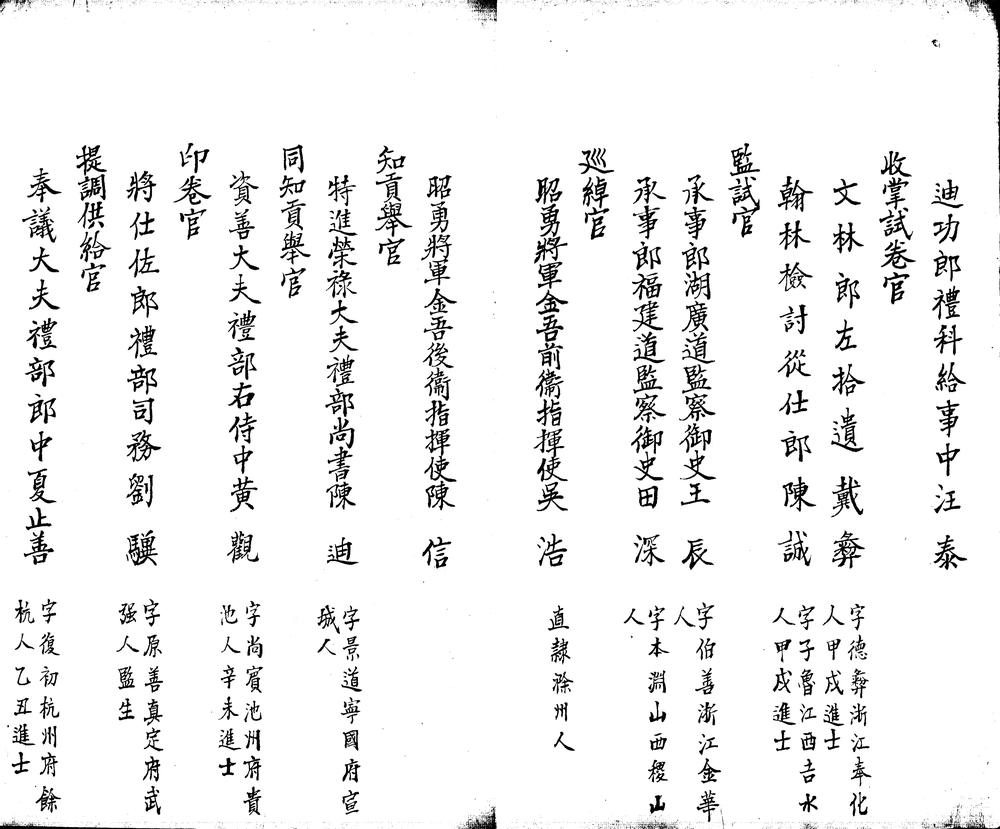 迪功郎禮科給事中汪 泰
收掌試卷官
文林郎左拾遺戴彝 字德彝浙江奉化人甲戌進士
翰林檢討從仕郎陳誠 字子魯江西吉水人甲戌進士
監試官
承事郎湖廣道監察御史王 辰 字伯善浙江金華人
承事郎福建道監察御史田 深 字本淵山西稷山人
巡綽官
昭勇將軍金吾前衞指揮使吳 浩 直隷滁州人
昭勇將軍金吾後衞指揮使陳 信
知貢舉官
特進榮祿大夫禮部尚書陳 迪 字景道寧國府宣城人
同知貢舉官
資善大夫禮部右侍中黄 觀 字尚賓池州府貴池人辛未進士
印卷官
將仕佐郎禮部司務劉 驥 字原善真定府武强人監生
提調供給官
奉議大夫禮部郎中夏止善 字復初杭州府餘杭人乙丑進士